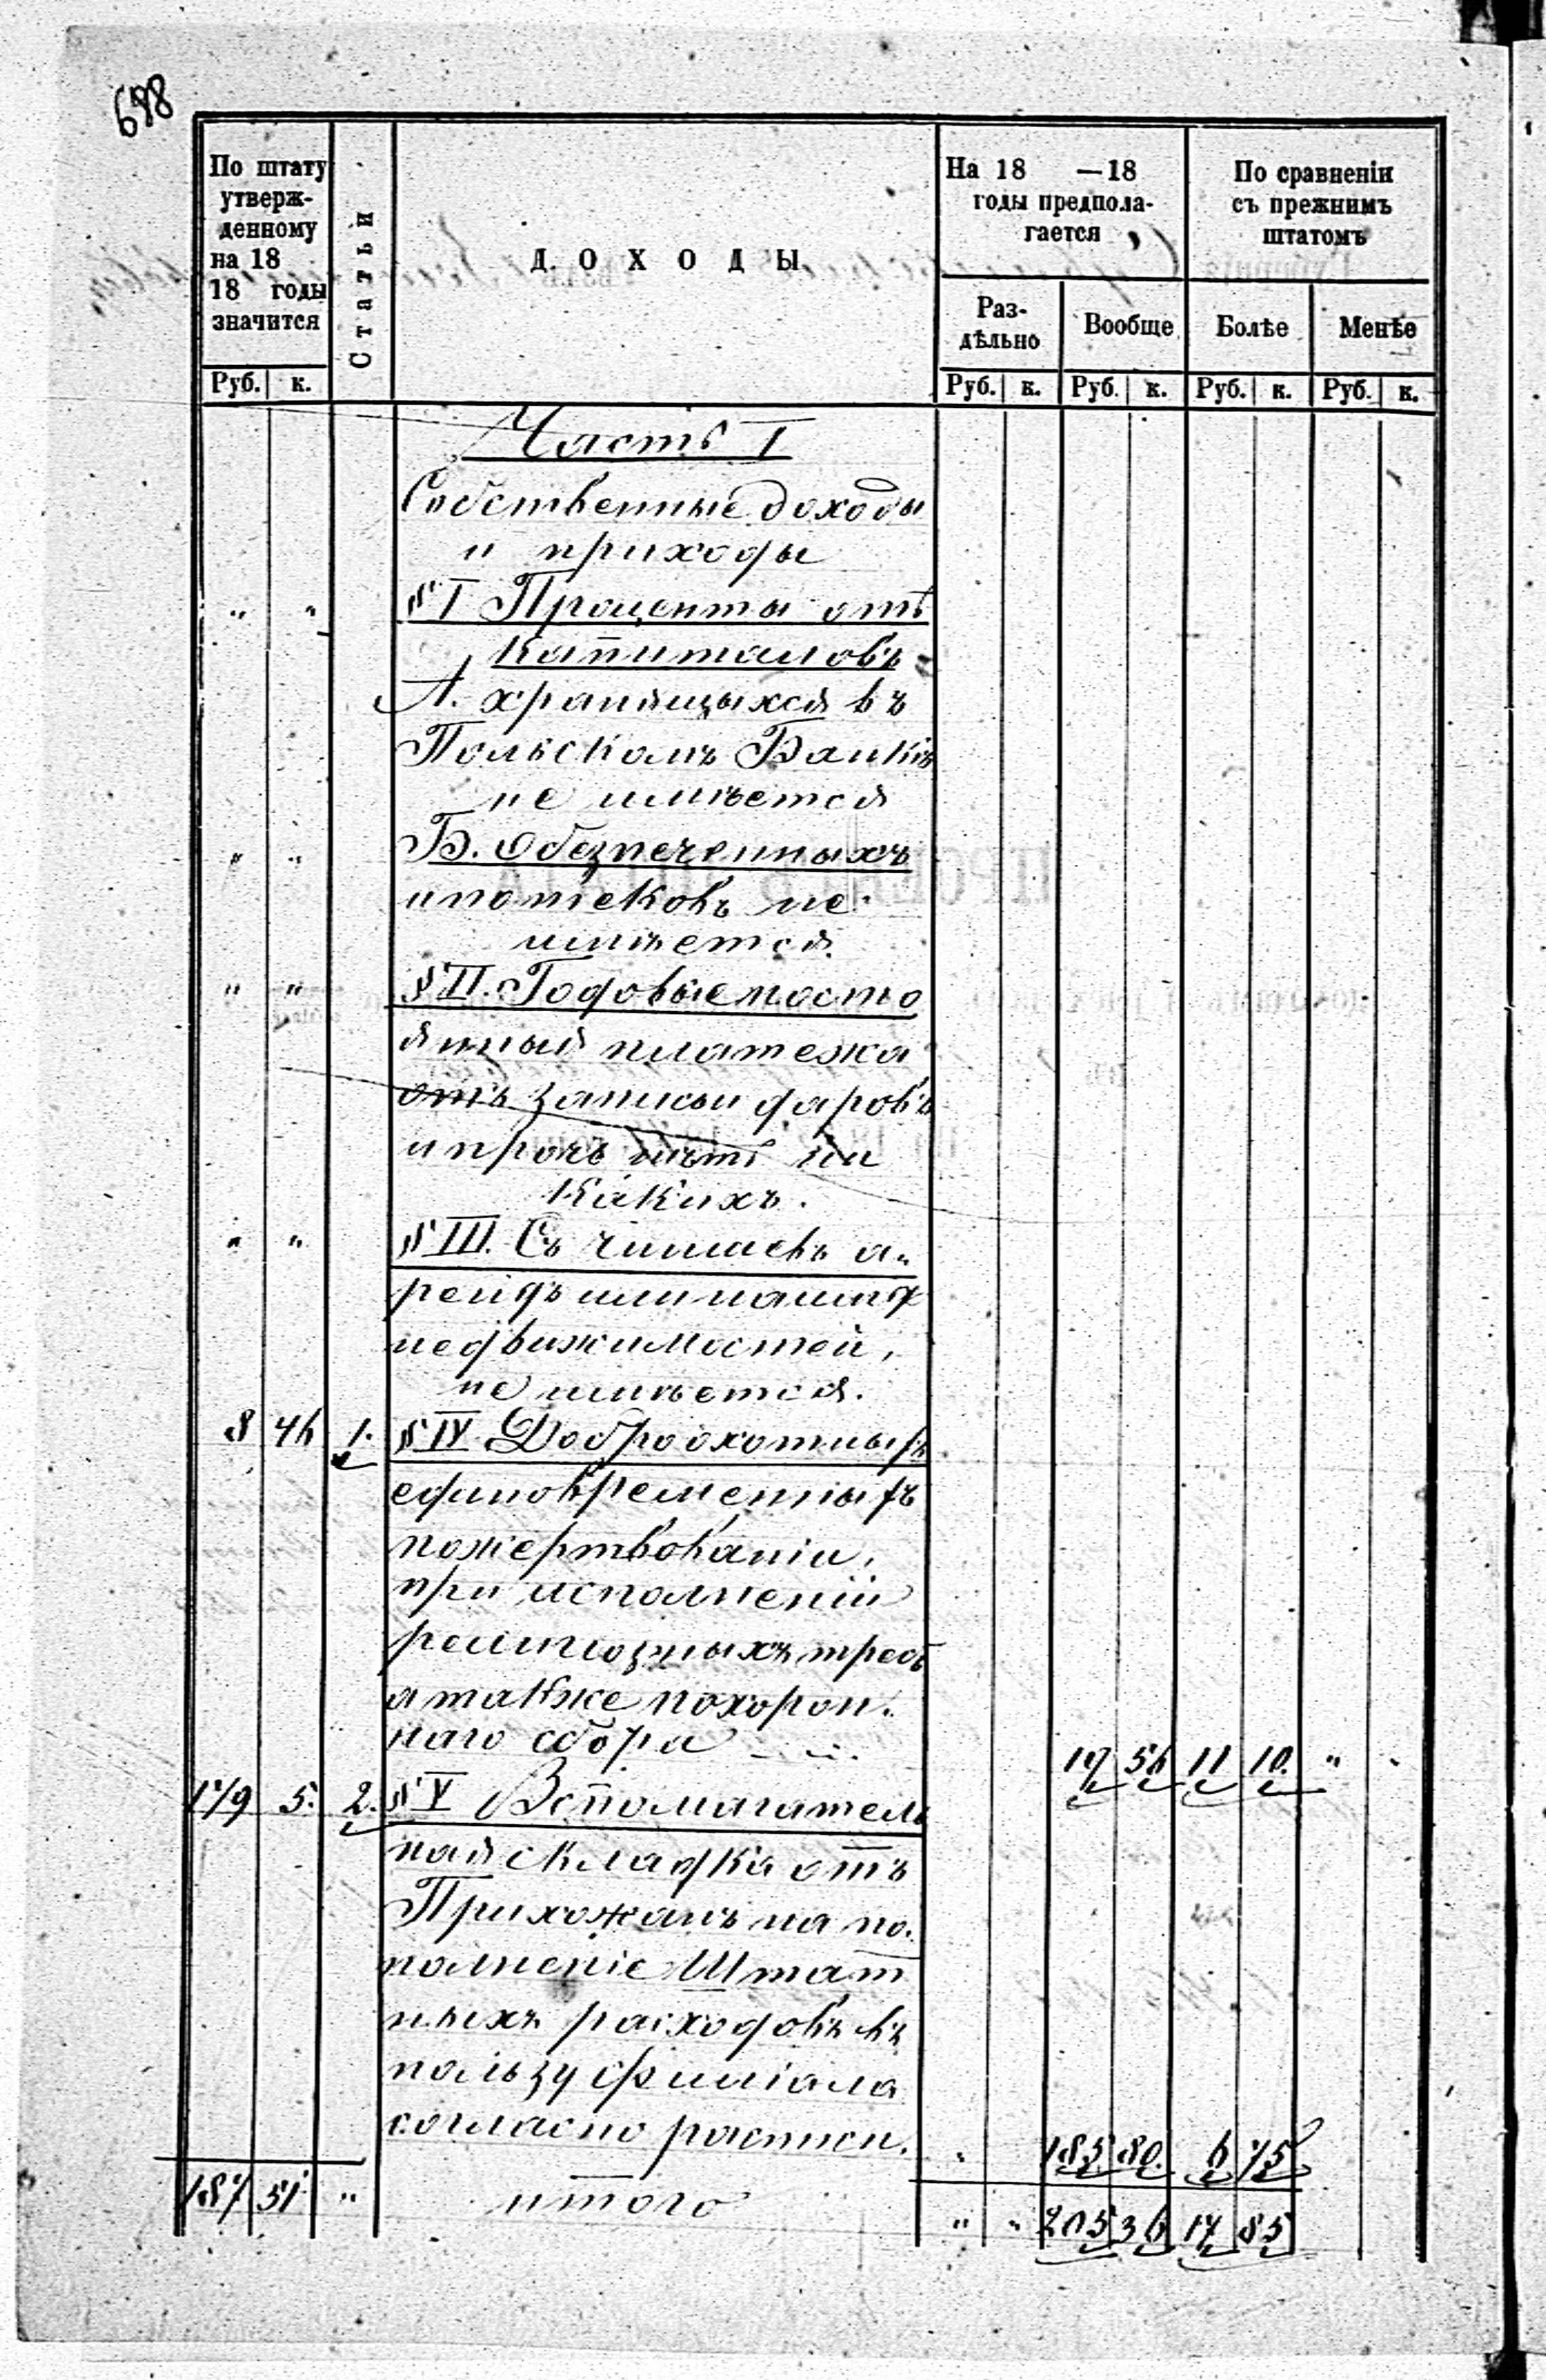 698
По штату
утверж-
денному
на 18
18 годы
значится
Руб. к.
Статьи
ДОХОДЫ
На 18 —18
годы предпола-
гается
Раз-
дѣльно
Руб. к.
Вообще
Руб. к.
По сравненіи
съ прежнимъ
штатомъ
Болѣе
Руб. к.
Менѣе
Руб. к.
Часть I
Собственные доходы
и приходы
" " § I Проценты отъ
капиталовъ
А. хранящихся въ
Польскомъ Банкѣ
не имѣется
" " Б. Обезпеченныхъ
ипотековъ не
имѣется.
" " § II. Годовые посто
янный платежа
отъ записи даровъ
и проч нѣтъ ни
какихъ.
" " § III. Съ чиншевъ а-
рендъ или найма
недвижимостей,
не имѣется.
8 46 1. § IV Доброохотныхъ
единовременныхъ
пожертвованіи,
при исполненіи
религіозныхъ требъ
а также похорон-
наго сбора 19 56 11 10. "
179 5. 2. § V Вспомагатель
ная складка отъ
Прихожанъ на по-
полненіе Штат
ныхъ расходовъ въ
пользу филіала
согласно росписи. 185 80. 6 75
187 51 " итого " " 205 36 17 85